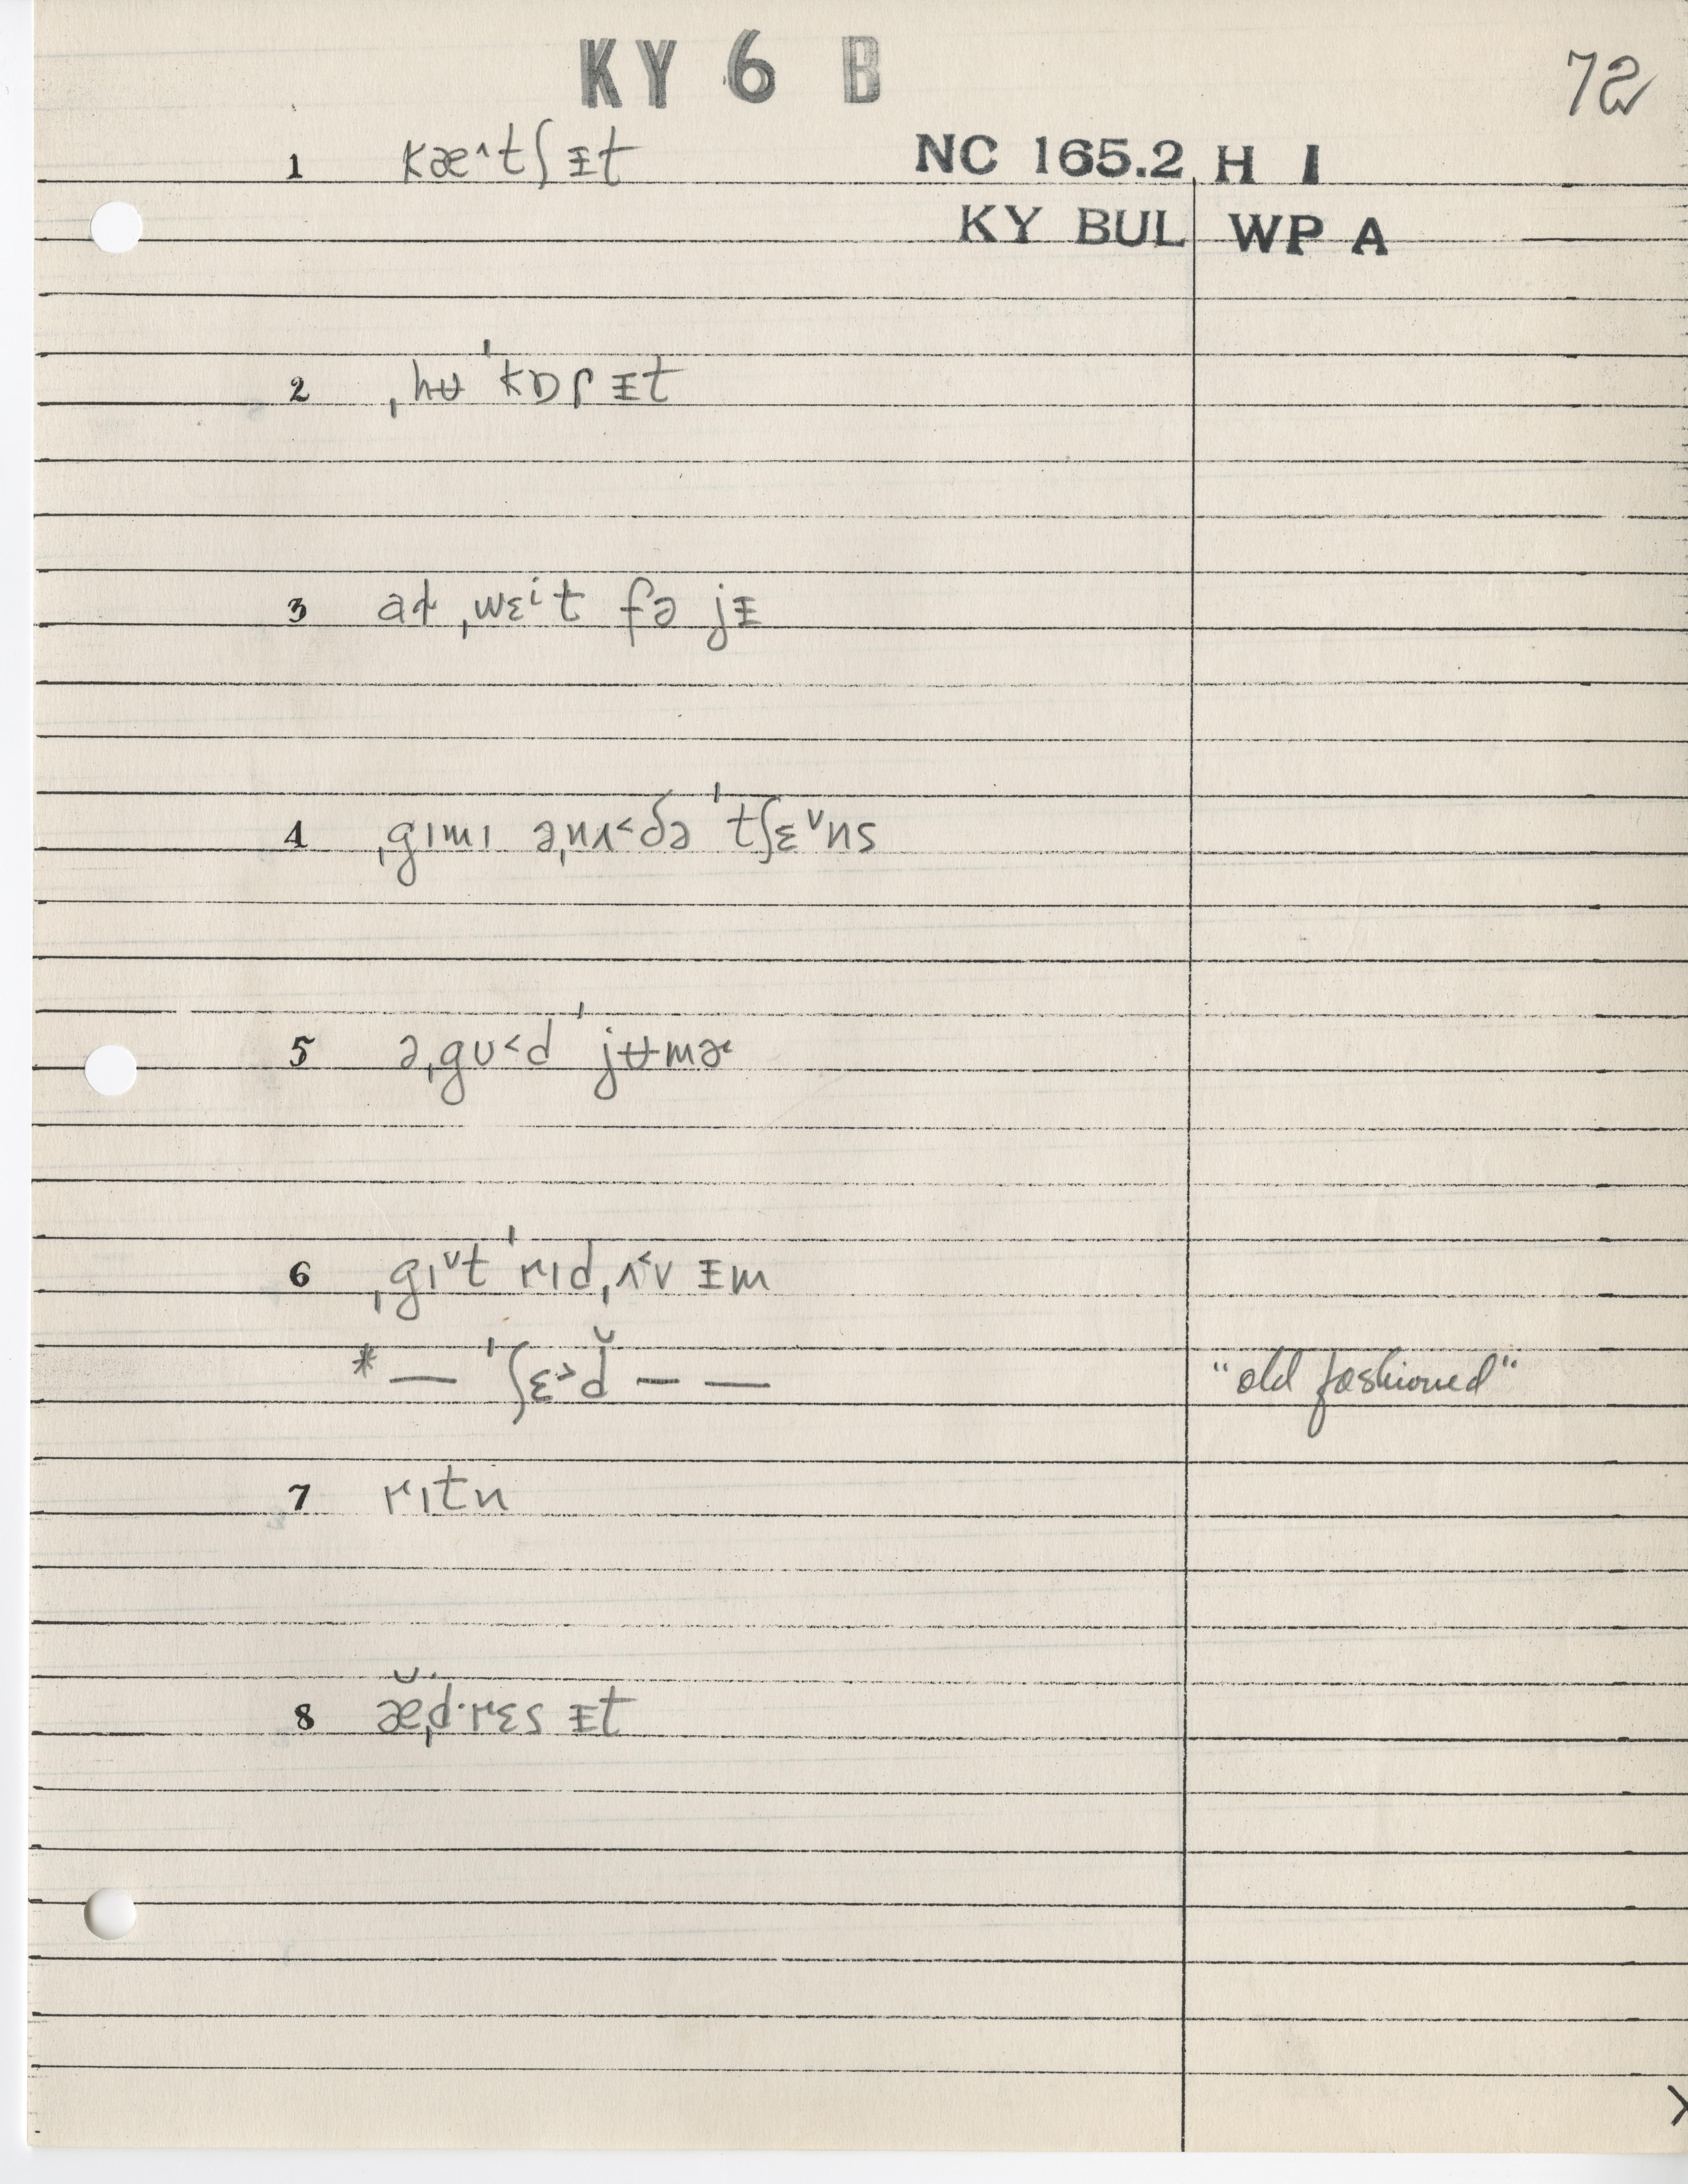 KY 6 B
72
1 kæ^tʃᵻt NC 165.2 H I
KY BUL WP A
2 ˌhʉ ˈkɒʃᵻt
3 aɨ ˌwɛⁱt fə jᵻ
4 ˌgɪmɪ əˌnʌ˂ðə ˈtʃɛ˅ns
5 əˌgʊ˂d ˈjʉmɚ
6 ˌgɪ˅t ˈrɪdˌʌ˂v ᵻm
* — ˈʃɛ˃d̆ — — "old fashioned"
7 rɪtn
8 æˌd̆·rɛs ᵻt